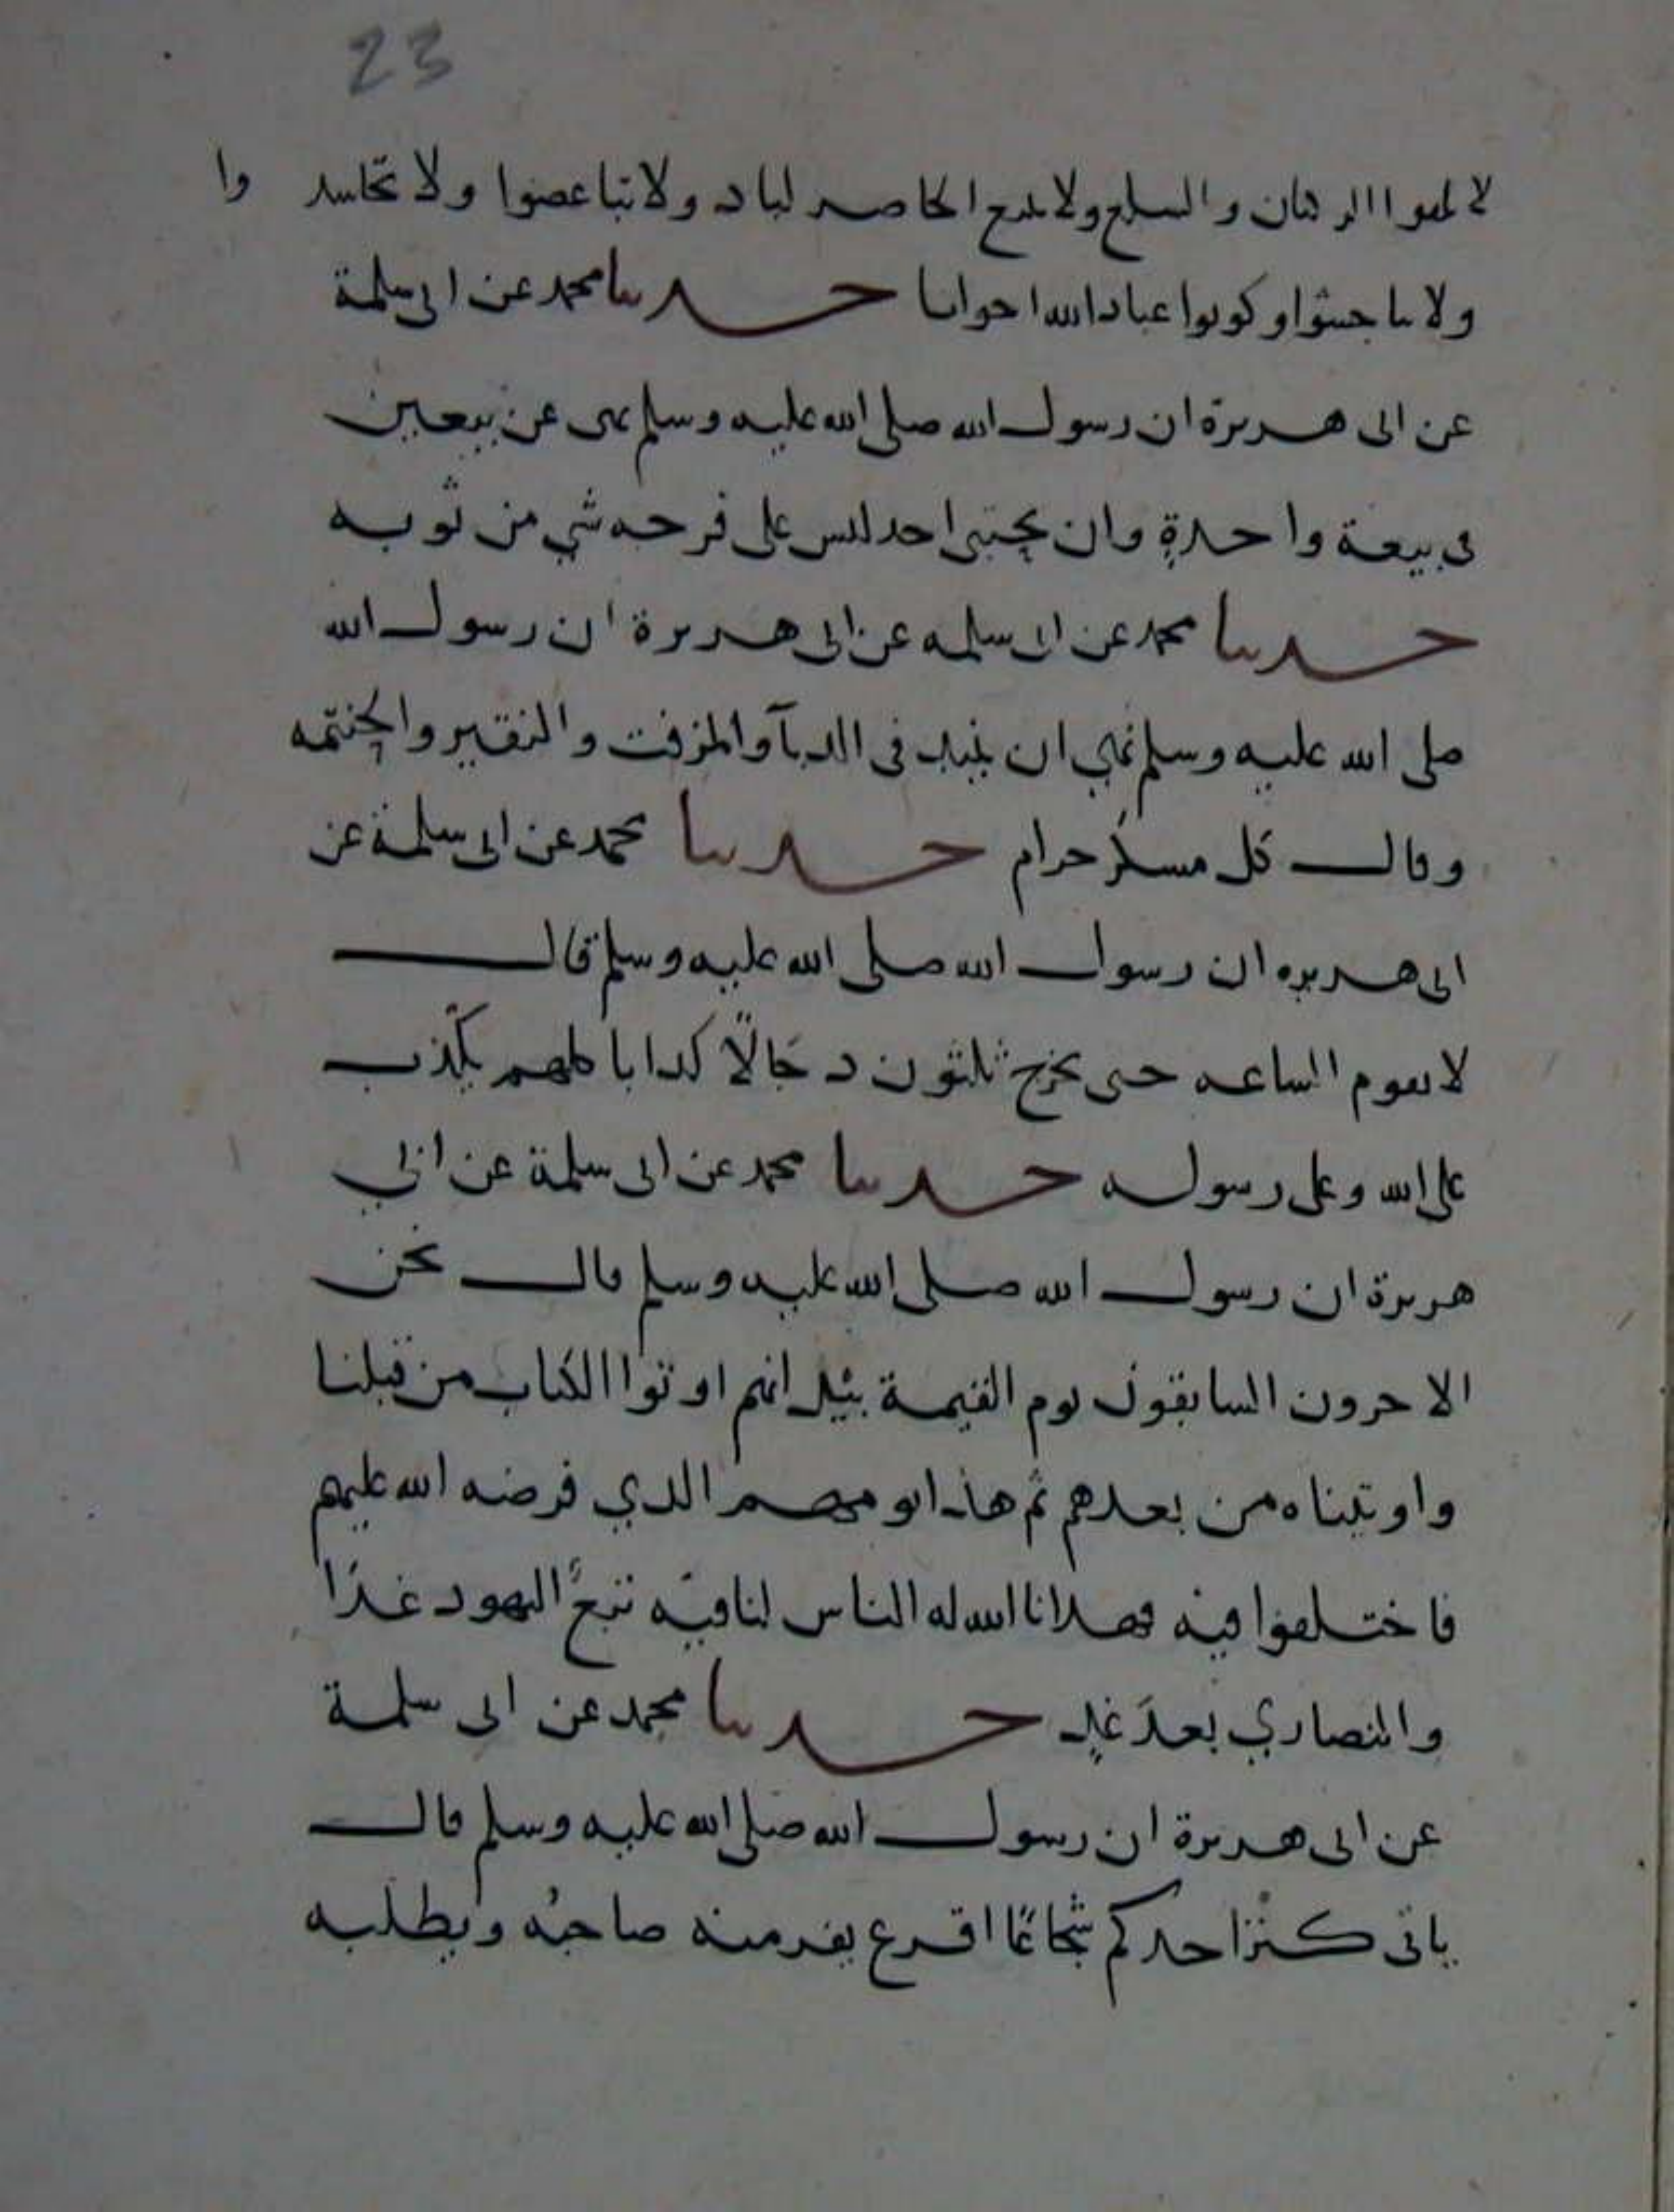 23
لا تلقوا الركبان والسلع ولا يبع الحاضر لباد ولا تباغضوا ولا تحاسدوا
ولا تناجشوا وكونوا عباد الله اخوانا حدثنا محمد عن ابي سلمة
عن ابى هريرة ان رسول الله صلى الله عليه وسلم نهى عن بيعين
فى بيعة واحدةٍ وان يحتبى احد ليس على فرجه شي من ثوبه
حدثنا محمد عن ابى سلمه عن ابى هريرة ان رسول الله
صلى الله عليه وسلم نهي ان ينبذ فى الدبآ والمزفت والنقير والحنتمه
وقال كل مسكر حرام حدثنا محمد عن ابى سلمة عن
ابى هريره ان رسول الله صلى الله عليه وسلم قال
لا تقوم الساعه حتى يخرج ثلثون دجالاً كذابا كلهم يكذب
على الله وعلى رسوله حدثنا محمد عن ابى سلمة عن ابي
هريرة ان رسول الله صلى الله عليه وسلم قال نحن
الاخرون السابقون يوم القيمة بيد انهم اوتوا الكتاب من قبلنا
واوتيناه من بعدهم ثم هذا يومهم الذي فرضه الله عليهم
فاختلفوا فيه فهدانا الله له الناس لنا فيه تبعٌ اليهود غدًا
والنصاري بعدَ غدٍ حدثنا محمد عن ابى سلمة
عن ابى هريرة ان رسول الله صلى الله عليه وسلم قال
ياتى كنز احدكم شجاعًا اقرع يفر منه صاحبُه ويطلبه